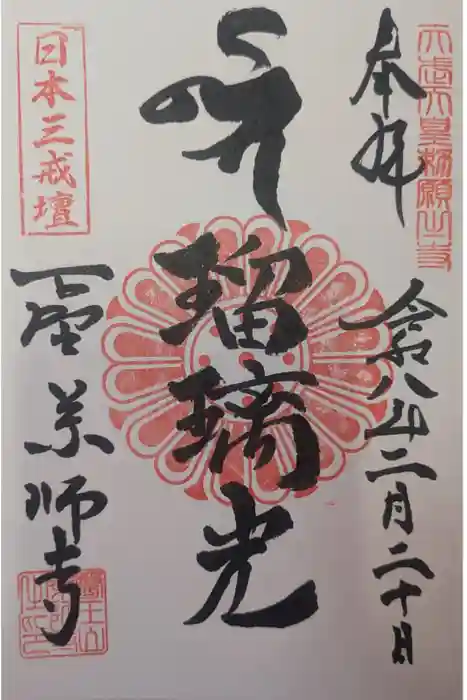 天武天皇勅願之寺
奉拝
令和八年二月二十日
瑠璃光
日本三戒壇
薬師寺